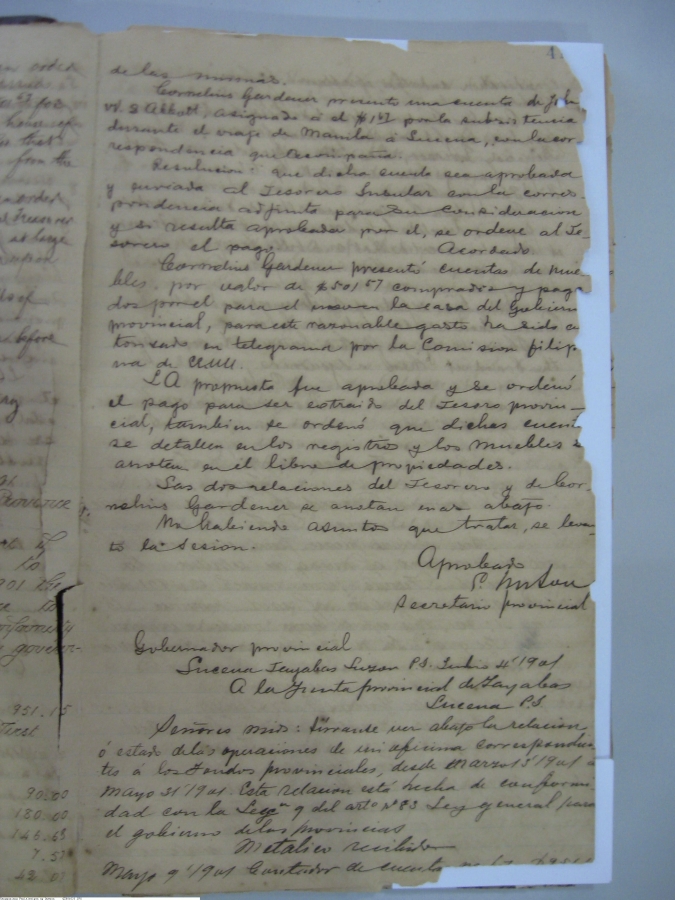 de las mismas.
Cornelius Gardener presento una cuenta de John
W. S Abbott, asignado á el $1.57 por la subsistencia
durante el viaje de Manila á Lucena, con la cor-
respondencia que acompaña.
Resolucion: que dicha cuenta sea aprobada
y enviada al Tesorero Insular con la corres-
pondencia adjunta para su consideracion
y si resulta aprobada por el, se ordene al Te-
sorero el pago. Acordado.
Cornelius Gardener presentó cuentas de mue-
bles por valor de $501 57 comprados y paga
dos por el para el uso en la casa del Gobierno
provincial, para este razonable gasto ha sido a
torizado en telegrama por la Comision filipi
na de EE.UU.
LA propuesta fue aprobada y se ordenó
el pago para ser extraido del Tesoro provin-
cial, tambien se ordenó que dichas cuent
se detallen en los registros y los muebles s
anoten en el libro de propiedades.
Las dos relaciones del Tesorero y de Cor-
nelius Gardener se anotan mas abajo.
No habiendo asuntos que tratar, se leva
tó la sesion.
Aprobado
Secretario provincial
Gobernador provincial
Lucena Tayabas Luzon P.I. Junio 4 1901
A la Junta provincial de Tayabas
Lucena P.I.
Señores mios: Sirvanse ver abajo la relacion
ó estado de las operaciones de mi oficina correspondien
tes á los fondos provinciales, desde Marzo 13 1901 á
Mayo 31 1901. Esta relacion está hecha de conformi
dad con la 9 del arto No 83 Ley general para
el gobierno de las provincias
Metalico recibido
Mayo 9 1901 de cuenta
an order
honor of
that
from the
order
Treasurer
at large
upon
before
Province
1901
govern-
951.15
90.00
180.00
146.65
7.57
43.07